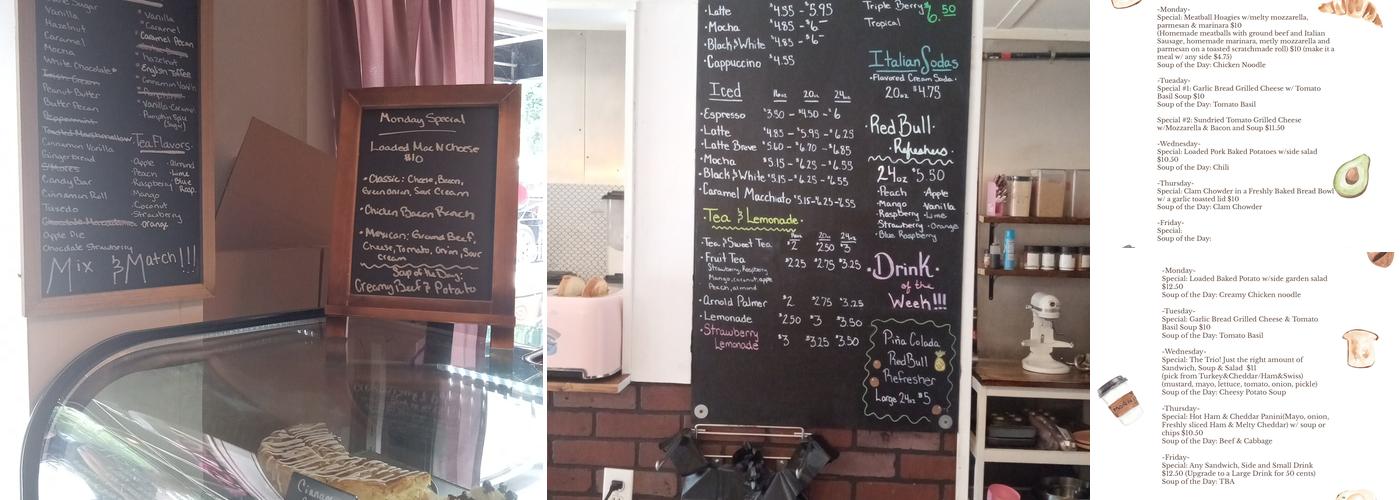 Vanilla
Hazelnut
Caramel
Mocha
White Chocolate
Irish Cream
Peanut Butter
Butter Pecan
Peppermint
Toasted Marshmallow
Cinnamon Vanilla
Gingerbread
S'Mores
Candy Bar
Cinnamon Roll
Tuxedo
Apple Pie
Chocolate Strawberry
• Vanilla
• Caramel
• Caramel Pecan
• Hazelnut
• English Toffee
• Vanilla-Caramel
Tea Flavors:
• Apple • almond
• Peach • Lime
• Raspberry • Blue Rasp.
• Mango
• Coconut
• Strawberry
• Orange
Mix & Match!!!
Monday Special
Loaded Mac N Cheese
$10
• Classic: Cheese, Bacon,
Green onion, Sour Cream
• Chicken Bacon Ranch
• Mexican: Ground Beef,
Cheese, Tomato, Onion, Sour
cream
Soup of the Day:
Creamy Beef & Potato
• Latte $4.35 - $5.95
• Mocha $4.85 - $6
• Black & White $4.85 - $6
• Cappuccino $4.55
Iced 16oz 20oz 24oz
• Espresso $3.50 - $4.50 - $6
• Latte $4.85 - $5.95 - $6.25
• Latte Breve $5.60 - $6.70 - $6.85
• Mocha $5.15 - $6.25 - $6.55
• Black & White $5.15 - $6.25 - $6.55
• Caramel Macchiato $5.15 - 6.25 - $6.55
• Tea & Lemonade •
16oz 20oz 24oz
• Tea & Sweet Tea $2 $2.50 $3
• Fruit Tea $2.25 $2.75 $3.25
Strawberry, Raspberry
Mango, coconut, apple
Peach, almond
• Arnold Palmer $2 $2.75 $3.25
• Lemonade $2.50 $3 $3.50
• Strawberry
Lemonade $3 $3.25 $3.50
Triple Berry $6.50
Tropical
Italian Sodas
• Flavored Cream Soda •
20oz $4.75
Red Bull
Refreshers
24oz $5.50
• Peach • Apple
• Mango Vanilla
• Raspberry • Lime
Strawberry • Orange
• Blue Raspberry
• Drink •
of the
Week!!!
Piña Colada
RedBull
Refresher
Large 24oz $5
-Monday-
Special: Meatball Hoagies w/melty mozzarella,
parmesan & marinara $10
(Homemade meatballs with ground beef and Italian
Sausage, homemade marinara, metly mozzarella and
parmesan on a toasted scratchmade roll) $10 (make it a
meal w/ any side $4.75)
Soup of the Day: Chicken Noodle
-Tueaday-
Special #1: Garlic Bread Grilled Cheese w/ Tomato
Basil Soup $10
Soup of the Day: Tomato Basil
Special #2: Sundried Tomato Grilled Cheese
w/Mozzarella & Bacon and Soup $11.50
-Wednesday-
Special: Loaded Pork Baked Potatoes w/side salad
$10.50
Soup of the Day: Chili
-Thursday-
Special: Clam Chowder in a Freshly Baked Bread Bowl
w/ a garlic toasted lid $10
Soup of the Day: Clam Chowder
-Friday-
Special:
Soup of the Day:
-Monday-
Special: Loaded Baked Potato w/side garden salad
$12.50
Soup of the Day: Creamy Chicken noodle
-Tuesday-
Special: Garlic Bread Grilled Cheese & Tomato
Basil Soup $10
Soup of the Day: Tomato Basil
-Wednesday-
Special: The Trio! Just the right amount of
Sandwich, Soup & Salad $11
(pick from Turkey&Cheddar/Ham&Swiss)
(mustard, mayo, lettuce, tomato, onion, pickle)
Soup of the Day: Cheesy Potato Soup
-Thursday-
Special: Hot Ham & Cheddar Panini(Mayo, onion,
Freshly sliced Ham & Melty Cheddar) w/ soup or
chips $10.50
Soup of the Day: Beef & Cabbage
-Friday-
Special: Any Sandwich, Side and Small Drink
$12.50 (Upgrade to a Large Drink for 50 cents)
Soup of the Day: TBA